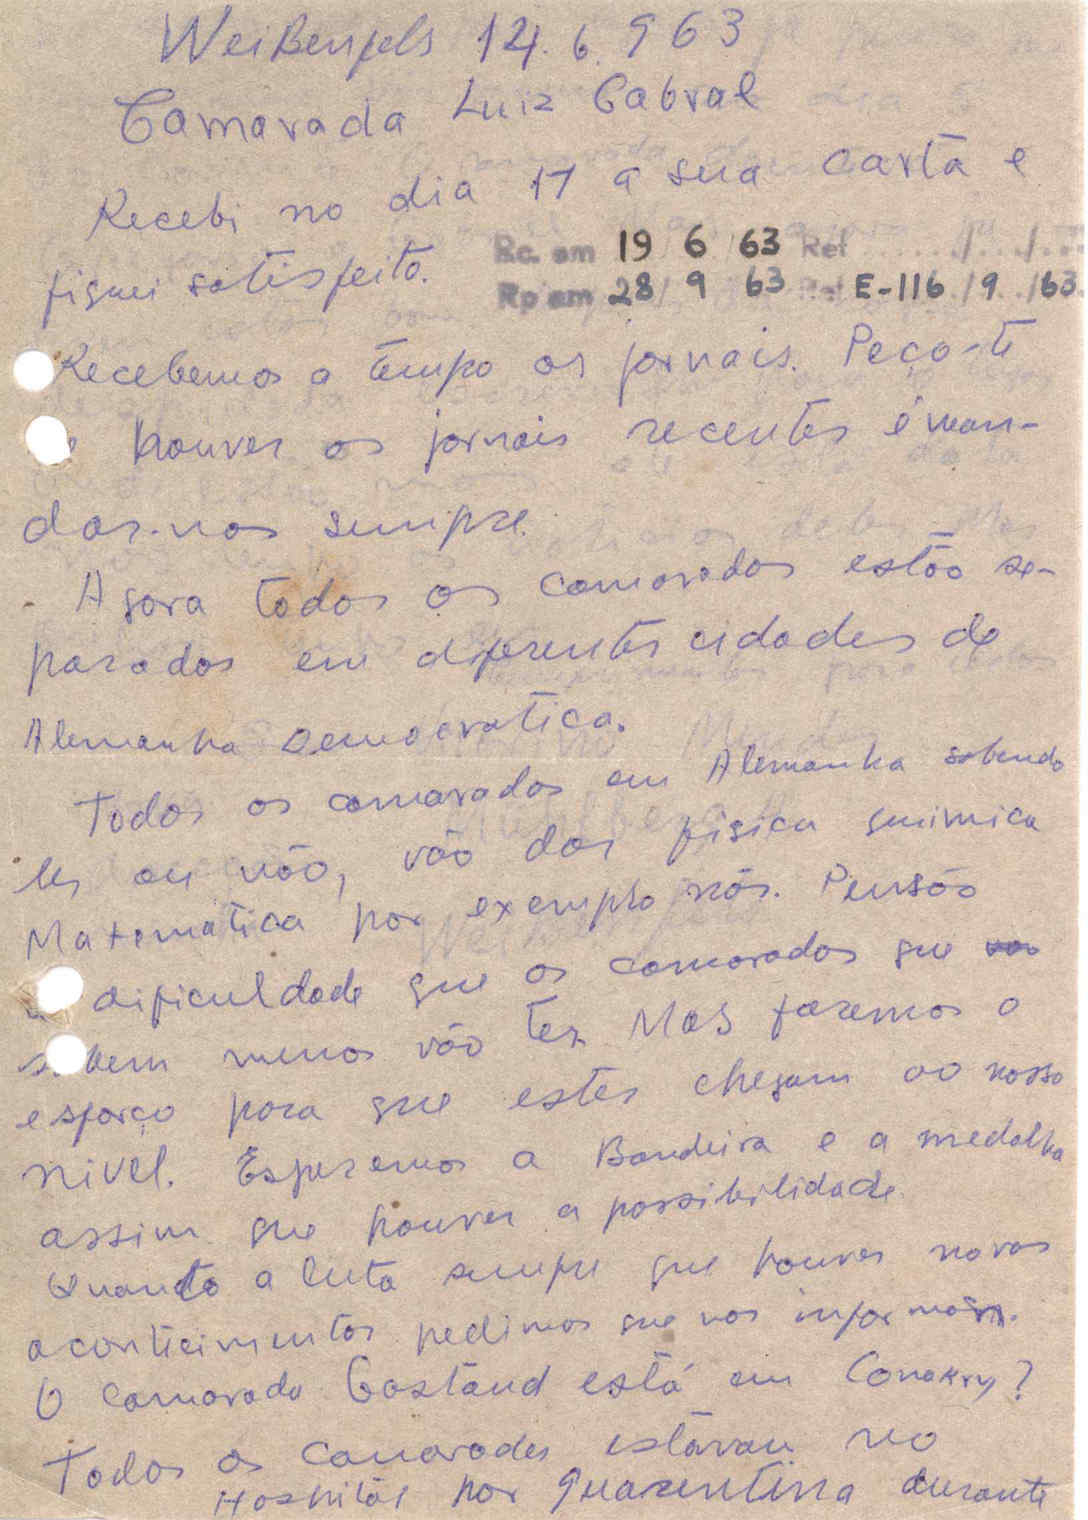 Weißenfels 14.6.963
Camarada Luiz Cabral
Recebi no dia 17 a sua carta e
fiquei satisfeito.
Rc. em 19/6/63 Ref ....../..../....
Rp em 28/9/63 Ref E-116/9/63
Recebemos a tempo os jornais. Peço-te
houver os jornais recentes é man-
dar-nos sempre.
Agora todos os camaradas estão se-
parados em diferentes cidades da
Alemanha Democratica.
Todos os camaradas em Alemanha sabendo
ler ou não, vão dar fisica quimica
Matematica por exemplo nós. Pensão
a dificuldade que os camaradas que
sabem menos vão ter. Mas faremos o
esforço para que estes chegam ao nosso
nivel. Esperemos a Bandeira e a medalha
assim que houver a possibilidade.
Quanto a luta sempre que houver novos
aconticimentos pedimos que nos informam.
O camarada Gastand está em Conakry?
Todos os camarades estavam no
Hospital por quarentina durante